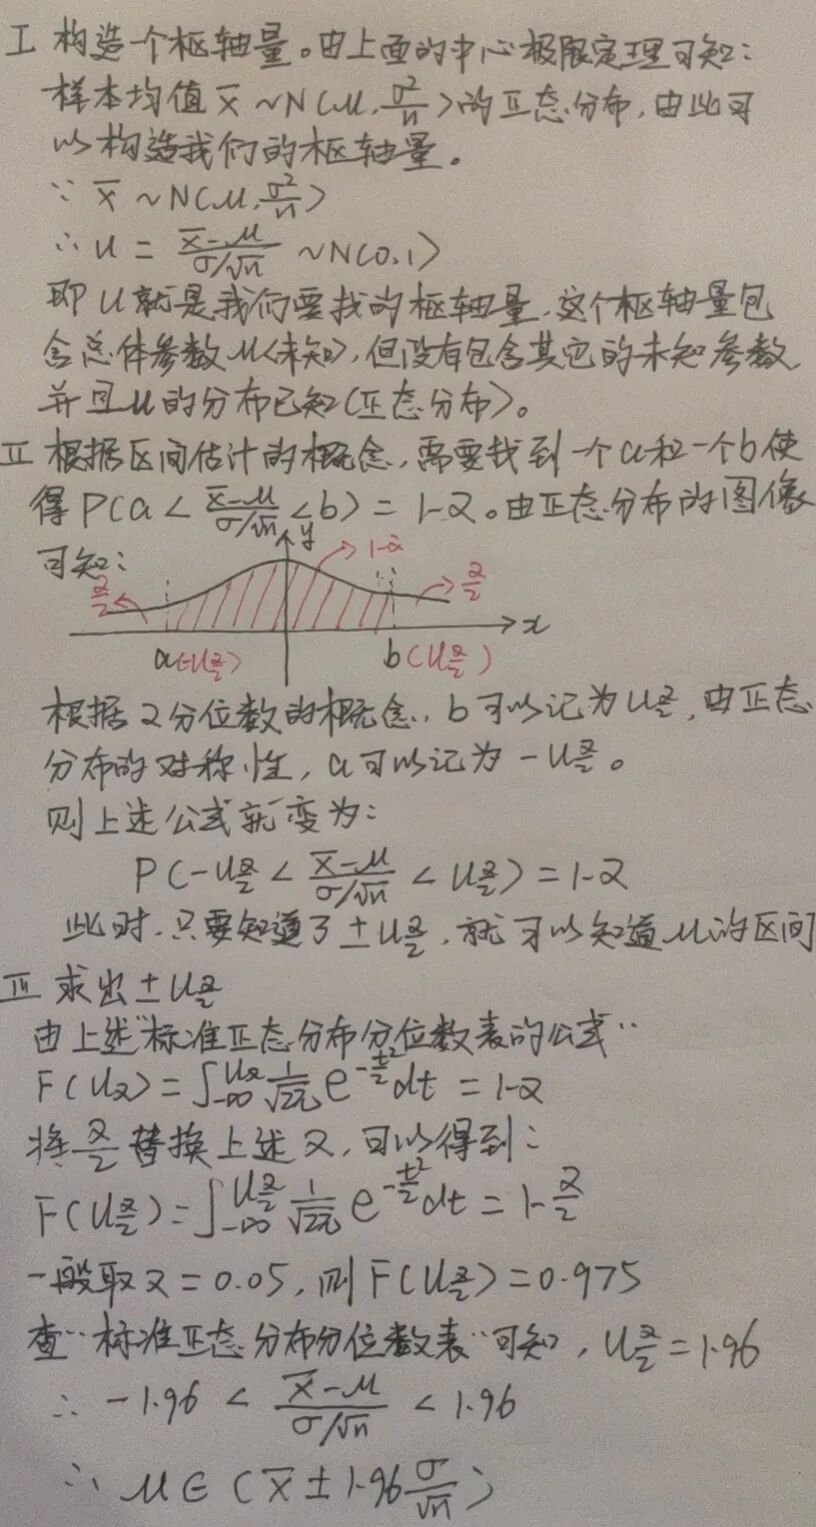 I 构造个枢轴量。由上面的中心极限定理可知：
样本均值 x̄ ~N(μ, σ²/n)的正态分布,由此可
以构造我们的枢轴量。
∵ x̄ ~N(μ, σ²/n)
∴ u = (x̄-μ)/(σ/√n) ~N(0,1)
即u就是我们要找的枢轴量,这个枢轴量包
含总体参数μ(未知),但没有包含其它的未知参数,
并且u的分布已知(正态分布)。
II 根据区间估计的概念,需要找到一个a和一个b使
得P(a < (x̄-μ)/(σ/√n) < b) = 1-α。由正态分布的图像
可知：
y
1-α
α/2
α/2
x
a(-u_{α/2})
b(u_{α/2})
根据α分位数的概念,b可以记为u_{α/2},由正态
分布的对称性,a可以记为-u_{α/2}。
则上述公式就变为：
P(-u_{α/2} < (x̄-μ)/(σ/√n) < u_{α/2}) = 1-α
此时,只要知道了±u_{α/2},就可以知道μ的区间
III 求出±u_{α/2}
由上述"标准正态分布分位数表的公式"
F(u_α) = ∫_{-∞}^{u_α} 1/√2π e^{-t²/2} dt = 1-α
将α/2替换上述α,可以得到：
F(u_{α/2}) = ∫_{-∞}^{u_{α/2}} 1/√2π e^{-t²/2} dt = 1-α/2
一般取α=0.05,则F(u_{α/2})=0.975
查"标准正态分布分位数表"可知,u_{α/2}=1.96
∴ -1.96 < (x̄-μ)/(σ/√n) < 1.96
∴ μ∈(x̄±1.96 σ/√n)